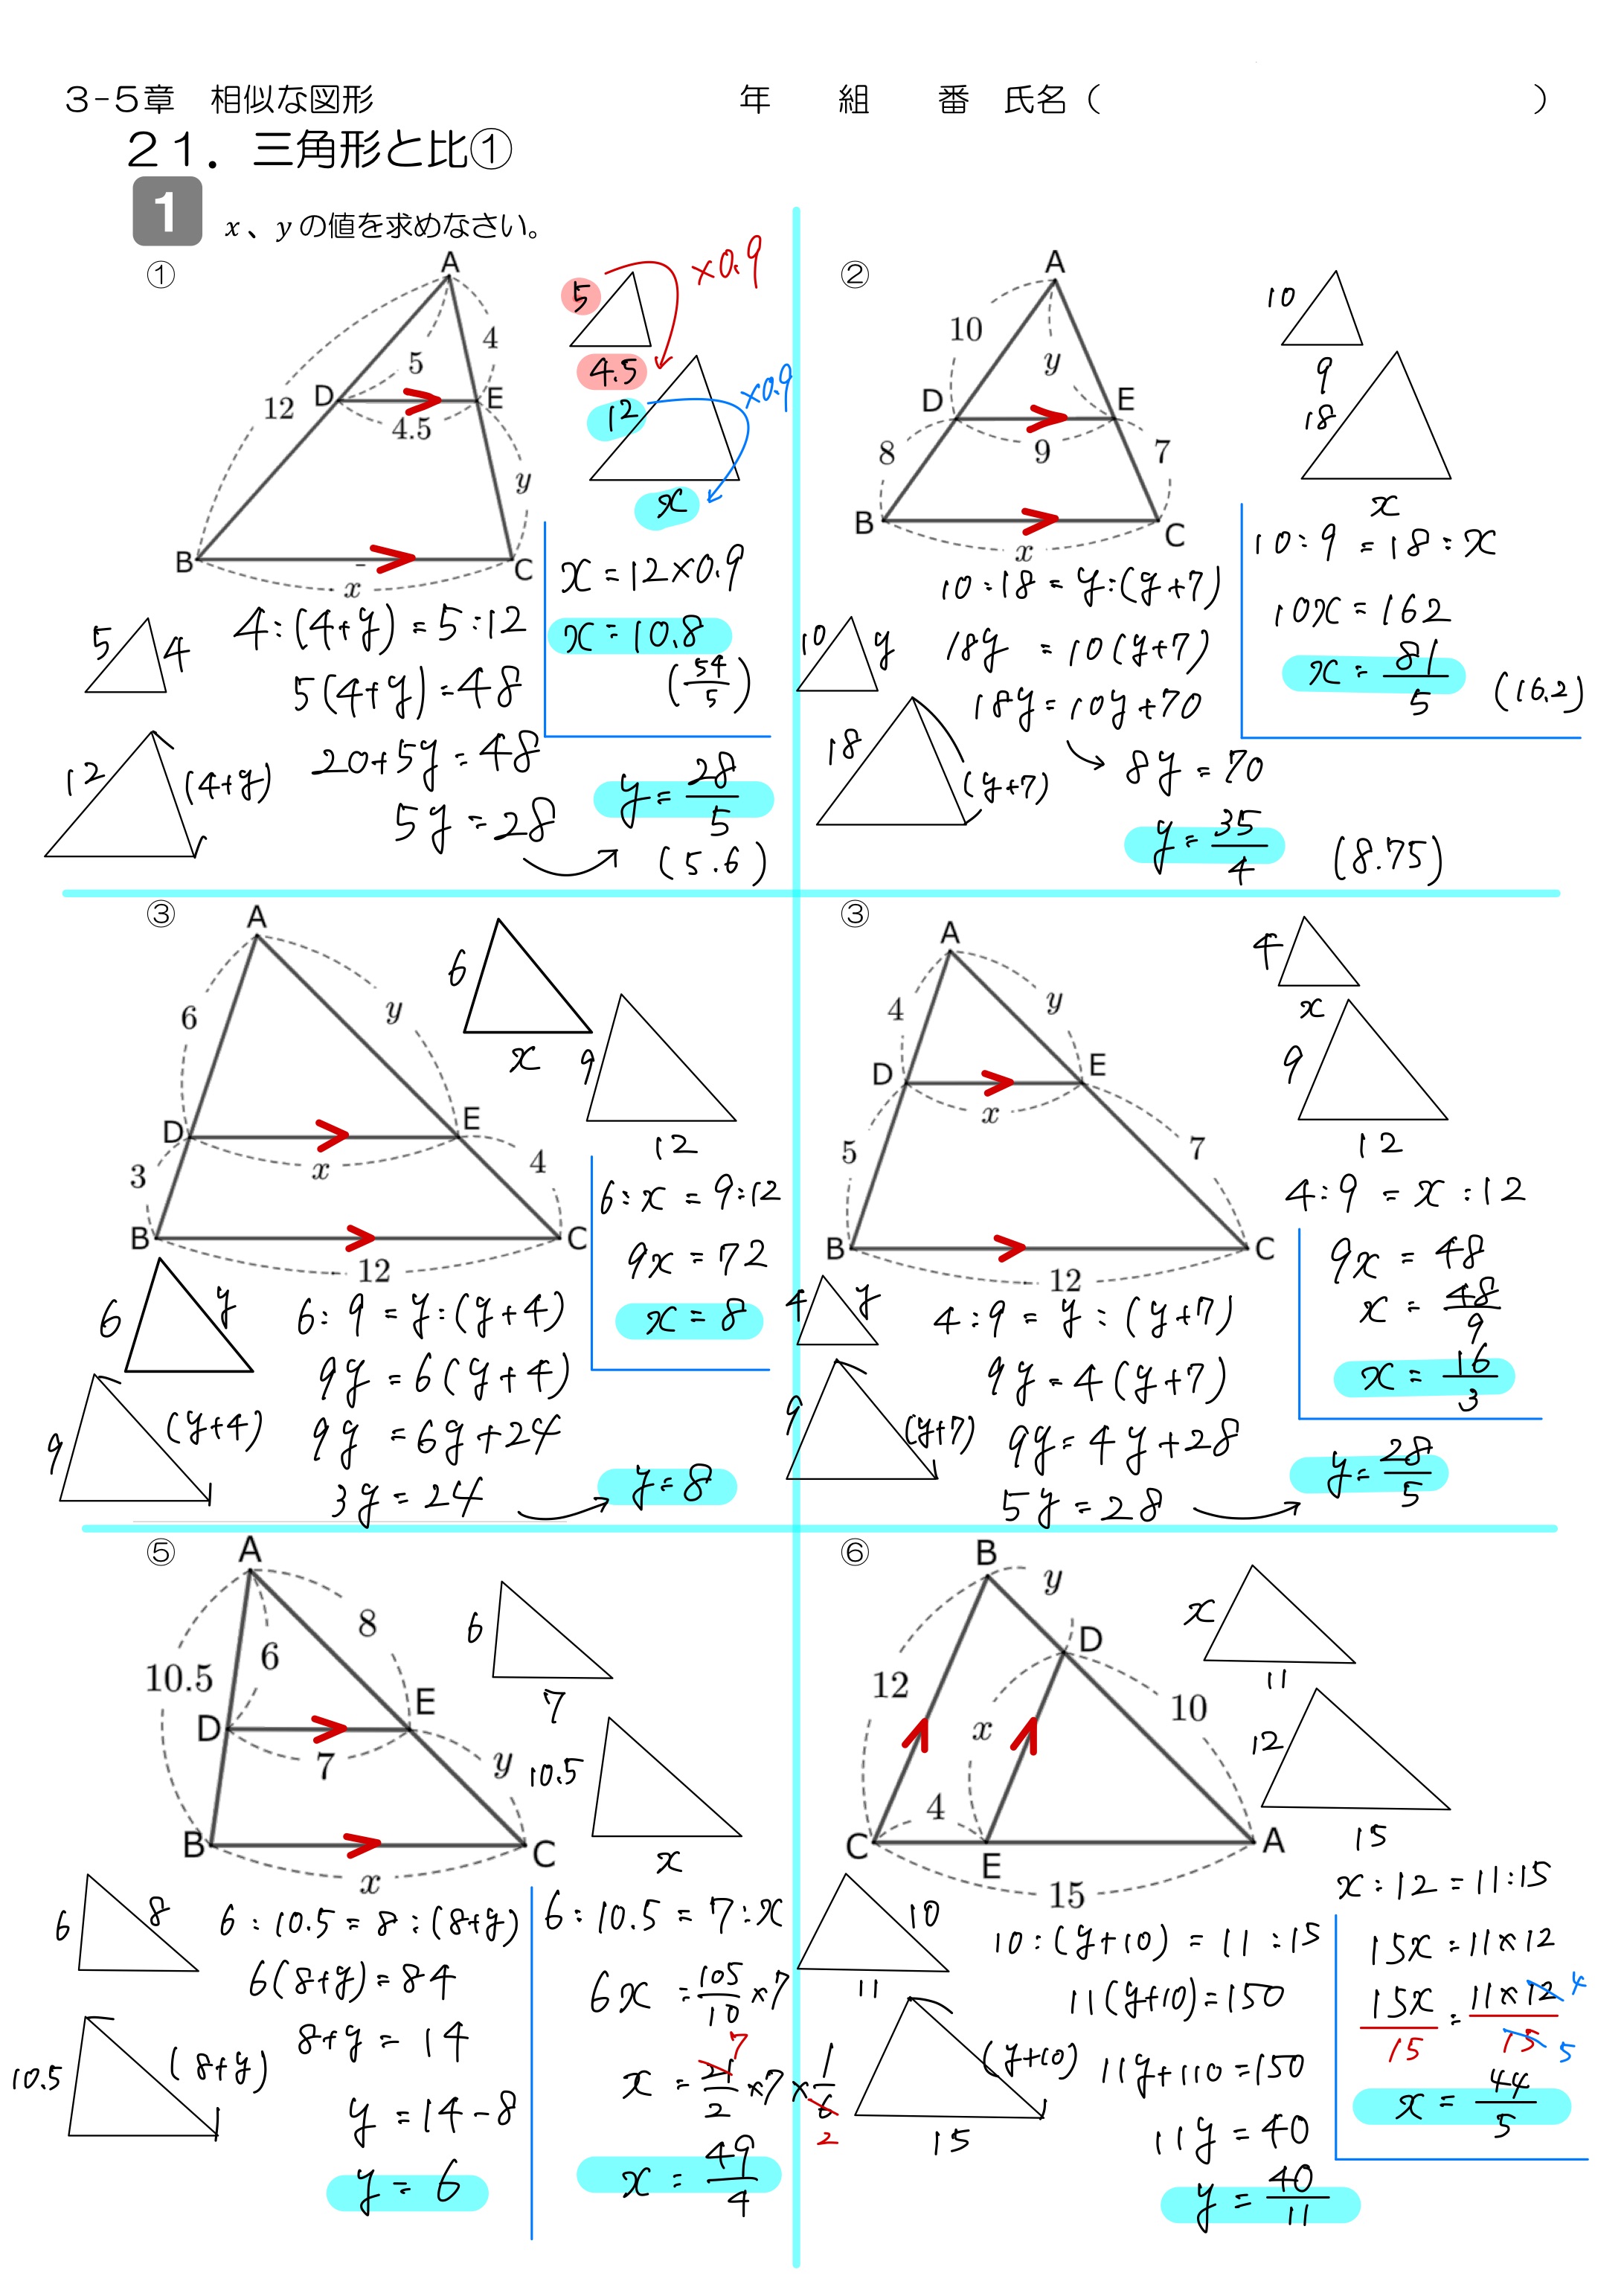 3-5章 相似な図形 年 組 番 氏名（ ）
21．三角形と比①
1 x、yの値を求めなさい。
①
A
12
5
4
D
E
4.5
y
B
x
C
5
×0.9
4.5
12
×0.9
x
x=12×0.9
x=10.8
(54/5)
5
4
12
(4+y)
4:(4+y)=5:12
5(4+y)=48
20+5y=48
5y=28
y=28/5
(5.6)
②
A
10
y
D
E
8
9
7
B
x
C
10
9
18
x
10:9=18:x
10x=162
x=81/5
(16.2)
10
y
18
(y+7)
10:18=y:(y+7)
18y=10(y+7)
18y=10y+70
8y=70
y=35/4
(8.75)
③
A
6
y
D
E
3
x
4
B
12
C
6
x
9
12
6:x=9:12
9x=72
x=8
6
y
9
(y+4)
6:9=y:(y+4)
9y=6(y+4)
9y=6y+24
3y=24
y=8
③
A
4
y
D
E
x
5
7
B
12
C
4
x
9
12
4:9=x:12
9x=48
x=48/9
x=16/3
4
y
9
(y+7)
4:9=y:(y+7)
9y=4(y+7)
9y=4y+28
5y=28
y=28/5
⑤
A
8
10.5
6
D
E
7
y
B
x
C
6
7
10.5
x
6:10.5=7:x
6x=105/10×7
x=21/2×7×1/6
7
2
x=49/4
6
8
10.5
(8+y)
6:10.5=8:(8+y)
6(8+y)=84
8+y=14
y=14-8
y=6
⑥
B
y
D
12
x
10
4
C
E
A
15
x
11
12
15
x:12=11:15
15x=11×12
15x/15=11×12/15
4
5
x=44/5
10
11
(y+10)
15
10:(y+10)=11:15
11(y+10)=150
11y+110=150
11y=40
y=40/11